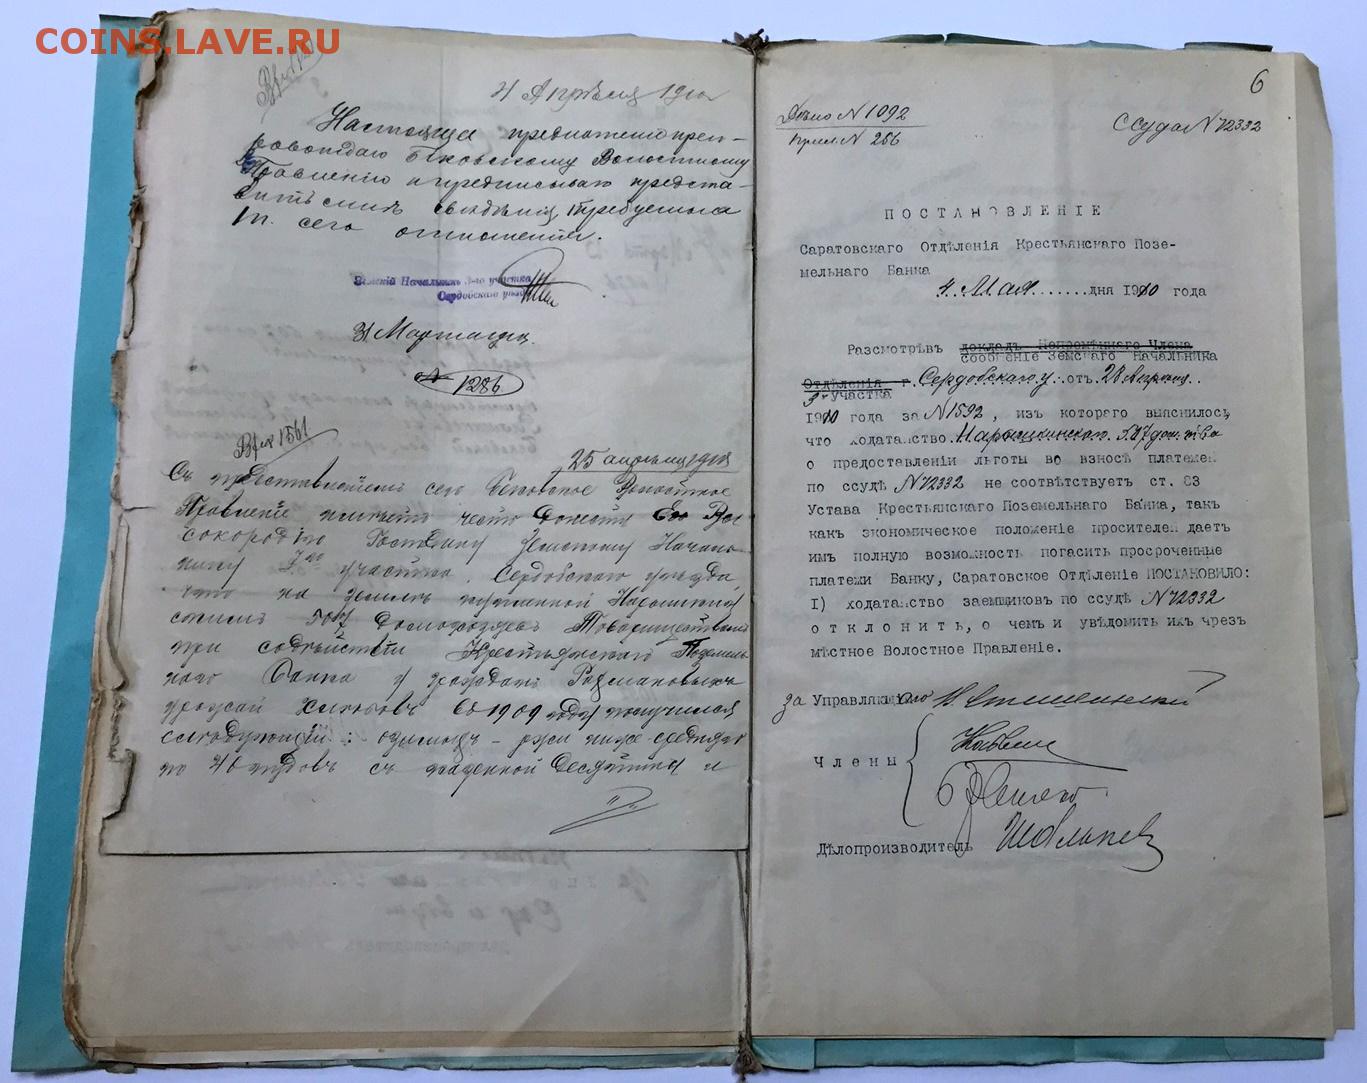 COINS.LAVE.RU
4 Апрѣля 1910
Настоящее препро-
вождаю Бековскому Волостному
Правленію и предписываю предста-
вить мнѣ свѣдѣнія, требуемыя
сего отношенія.
Земскій Начальникъ 3-го участка
Сердобскаго уѣзда
31 Марта
№ 1286
Вх 1561
25 апрѣля 1910
Съ представленіемъ сего Бековское Волостное
Правленіе имѣетъ честь донести Его Вы-
сокородію Господину Земскому Началь-
нику участка, Сердобскаго уѣзда,
что на землѣ купленной Нарышкин
скимъ домохозяевъ Товариществомъ
при содѣйствіи Крестьянскаго Поземель-
наго Банка у граждан
урожай хлѣбовъ въ 1909 году получился
слѣдующій: озимыхъ - ржи ниже средняго
по 40 пудовъ съ казенной десятины и
6
Дѣло N 1092
N 256
Ссуда N 72332
ПОСТАНОВЛЕНІЕ
Саратовскаго Отдѣленія Крестьянскаго Позе-
мельнаго Банка
4 Мая дня 1910 года
Разсмотрѣвъ докладъ Непремѣннаго Члена
сообщеніе Земскаго Начальника
Отдѣленія г. Сердобскаго у. отъ 28 Апрѣля
3 участка
1910 года за N 1592, изъ котораго выяснилось,
что ходатайство Нарышкинскаго
о предоставленіи льготы во взносѣ платежей
по ссудѣ N 72332 не соотвѣтствуетъ ст. 83
Устава Крестьянскаго Поземельнаго Банка, такъ
какъ экономическое положеніе просителей даетъ
имъ полную возможность погасить просроченные
платежи Банку, Саратовское Отдѣленіе ПОСТАНОВИЛО:
I) ходатайство заемщиковъ по ссудѣ N 72332
отклонить, о чемъ и увѣдомить ихъ чрезъ
мѣстное Волостное Правленіе.
за Управляющаго
Члены
Дѣлопроизводитель